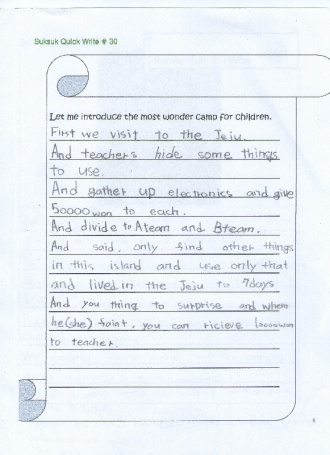 Suksuk Quick Write # 30
Let me introduce the most wonder camp for children.
First we visit to the Jeju.
And teachers hide some things
to use.
And gather up electronics and give
50000 won to each.
And divide to Ateam and Bteam.
And said, only find other things
in this island and use only that
and lived in the Jeju to 7days
And you thing to surprise and when
he(she) faint, you can ricieve 10000won
to teacher.